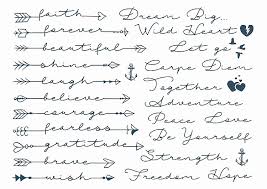 faith
forever
beautiful
shine
laugh
believe
courage
fearless
gratitude
brave
wish
Dream Big...
Wild Heart
Let go
Carpe Diem
Together
Adventure
Peace Love
Be Yourself
Strength
Freedom Hope